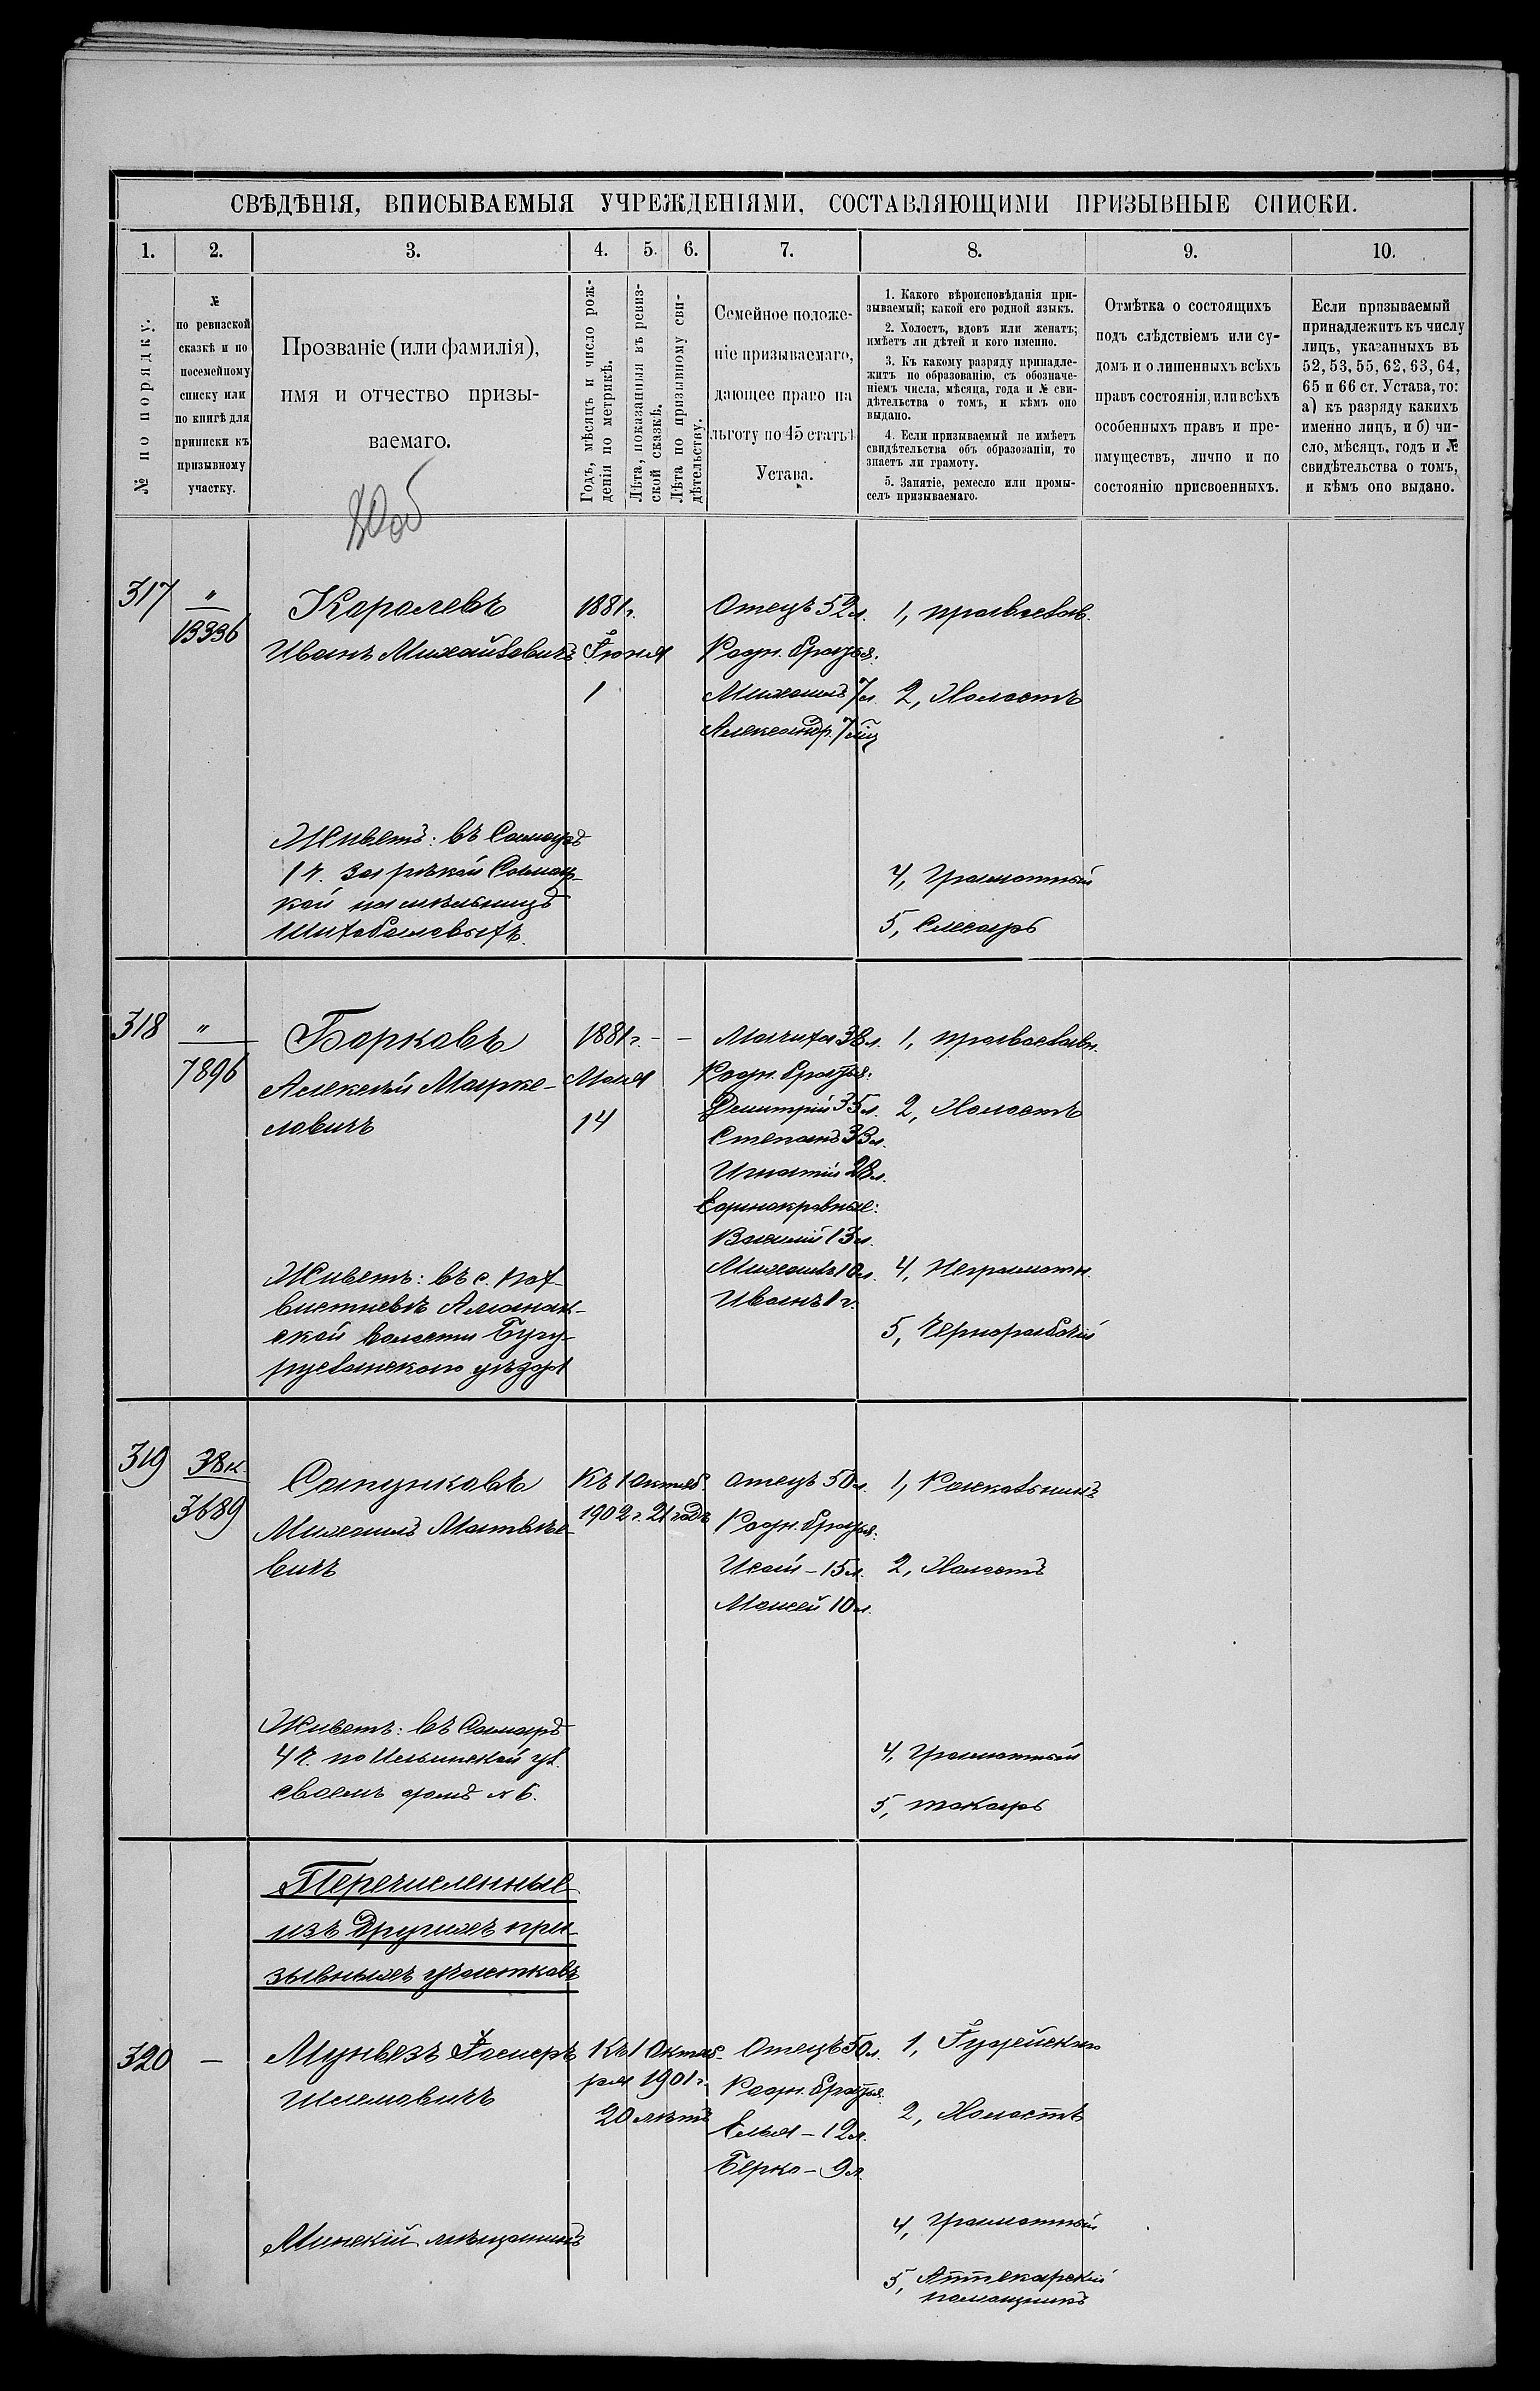 СВѢДѢНІЯ, ВПИСЫВАЕМЫЯ УЧРЕЖДЕНІЯМИ, СОСТАВЛЯЮЩИМИ ПРИЗЫВНЫЕ СПИСКИ.
1. 2. 3. 4. 5. 6. 7. 8. 9. 10.
№ по порядку.
№
по ревизской
сказкѣ и по
посемейному
списку или
по книгѣ для
приписки къ
призывному
участку.
Прозваніе (или фамилія),
имя и отчество призы-
ваемаго.
Годъ, мѣсяцъ и число рож-
денія по метрикѣ.
Лѣта, показанныя въ ревиз-
ской сказкѣ.
Лѣта по призывному сви-
дѣтельству.
Семейное положе-
ніе призываемаго,
дающее право на
льготу по 45 статьѣ
Устава.
1. Какого вѣроисповѣданія при-
зываемый; какой его родной языкъ.
2. Холостъ, вдовъ или женатъ;
имѣетъ ли дѣтей и кого именно.
3. Къ какому разряду принадле-
житъ по образованію, съ обозначе-
ніемъ числа, мѣсяца, года и № сви-
дѣтельства о томъ, и кѣмъ оно
выдано.
4. Если призываемый не имѣетъ
свидѣтельства объ образованіи, то
знаетъ ли грамоту.
5. Занятіе, ремесло или промы-
селъ призываемаго.
Отмѣтка о состоящихъ
подъ слѣдствіемъ или су-
домъ и о лишенныхъ всѣхъ
правъ состоянія, или всѣхъ
особенныхъ правъ и пре-
имуществъ, лично и по
состоянію присвоенныхъ.
Если призываемый
принадлежитъ къ числу
лицъ, указанныхъ въ
52, 53, 55, 62, 63, 64,
65 и 66 ст. Устава, то:
а) къ разряду какихъ
именно лицъ, и б) чи-
сло, мѣсяцъ, годъ и №
свидѣтельства о томъ,
и кѣмъ оно выдано.
317
"
13336
Королевъ
Иванъ Михайловичъ
Живетъ: въ Самарѣ
1 ч. за рѣкой Самар-
кой на мельницѣ
Шихобаловыхъ.
1881 г.
Іюня
1
Отецъ 52 л.
Родн. братья:
Михаилъ 7 л.
Александр. 7 мѣц
1, православ.
2, Холостъ
4, Грамотный
5, Слесарь
318
"
7896
Борковъ
Алексѣй Марке-
ловичъ
Живетъ: въ с. Пох-
вистневѣ Аманак-
ской волости Бугу-
русланскаго уѣзда
1881 г. - -
Мая
14
Мачиха 38 л.
Родн. братья:
Димитрій 35 л.
Степанъ 33 л.
Игнатій 28 л.
Единокровные:
Василій 13 л.
Михаилъ 10 л.
Иванъ 1 г.
1, православн.
2, Холостъ
4, Неграмотн.
5, Чернорабочій
319
38 к.
3689
Сапунковъ
Михаилъ Матвѣе-
вичъ
Живетъ: въ Самарѣ
4 ч. по Ильинской ул.
своемъ домѣ № 6.
Къ 1 Октяб.
1902 г. 21 годъ
Отецъ 50 л.
Родн. братья:
Исай - 15 л.
Моисей 10 л.
1, Раскольникъ
2, Холостъ
4, Грамотный
5, токарь
Перечисленные
изъ другихъ при-
зывныхъ участковъ
320
—
Мунвезъ Іосперъ
Шлемовичъ
Минскій мѣщанинъ
Къ 1 Октяб-
ря 1901 г.
20 лѣтъ
Отецъ 50 л.
Родн. братья:
Елья - 12 л.
Берко - 9 л.
1, Іудейскаго
2, Холостъ
4, Грамотный
5, Аптекарскій
помощникъ